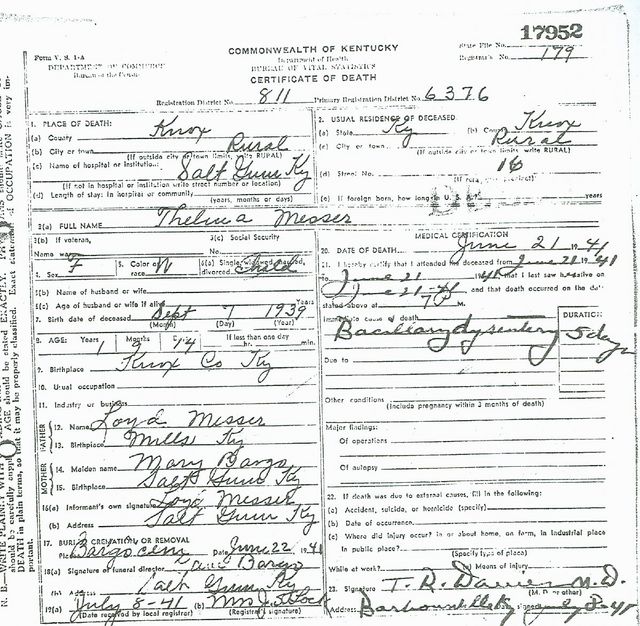 17952
Form V. S. 1-A
COMMONWEALTH OF KENTUCKY
State File No.
DEPARTMENT OF COMMERCE
Department of Health
Registrar's No. 179
Bureau of the Census
BUREAU OF VITAL STATISTICS
CERTIFICATE OF DEATH
Registration District No. 811 Primary Registration District No. 6376
1. PLACE OF DEATH:
(a) County Knox
(b) City or town Rural
(If outside city or town limits, write RURAL)
(c) Name of hospital or institution: Salt Gum Ky
(If not in hospital or institution write street number or location)
(d) Length of stay: In hospital or community
(years, months or days)
2. USUAL RESIDENCE OF DECEASED:
(a) State Ky (b) County Knox
(c) City or town Rural
(If outside city or town limits, write RURAL)
(d) Street No.
(e) If foreign born, how long in U. S. A.? years
3(a) FULL NAME Thelma Messer
3(b) If veteran, 3(c) Social Security
Name war No.
4. Sex F 5. Color or race W 6(a) Single, widowed, married, divorced Child
6(b) Name of husband or wife
6(c) Age of husband or wife if alive Years
7. Birth date of deceased Sept 7 1939
(Month) (Day) (Year)
8. AGE: Years 1 Months 9 14 If less than one day
hr. min.
9. Birthplace Knox Co Ky
10. Usual occupation
11. Industry or business
FATHER
12. Name Loyd Messer
13. Birthplace Mills Ky
MOTHER
14. Maiden name Mary Bargo
15. Birthplace Salt Gum Ky
16(a) Informant's own signature Loyd Messer
(b) Address Salt Gum Ky
17. BURIAL, CREMATION, OR REMOVAL
Place Bargo cem Date June 22 1941
18(a) Signature of funeral director Bargo
Salt Gum Ky
19(a) July 8-41 Mrs J. S. Lock
(Date received by local registrar) (Registrar's signature)
MEDICAL CERTIFICATION
20. DATE OF DEATH June 21 1941
21. I hereby certify that I attended the deceased from June 21 1941
to June 21 1941 that I last saw her alive on
June 21-41 and that death occurred on the date
stated above at M.
Immediate cause of death
DURATION
Bacillary dysentery 5 days
Due to
Other conditions
(Include pregnancy within 3 months of death)
Major findings:
Of operations
Of autopsy
22. If death was due to external causes, fill in the following:
(a) Accident, suicide, or homicide (specify)
(b) Date of occurrence
(c) Where did injury occur? in or about home, on farm, in industrial place
In public place?
(Specify type of place)
While at work? (e) Means of injury
23. Signature T. R. Davies M.D.
(M. D. or other)
Address Barbourville Ky signed July 8-41